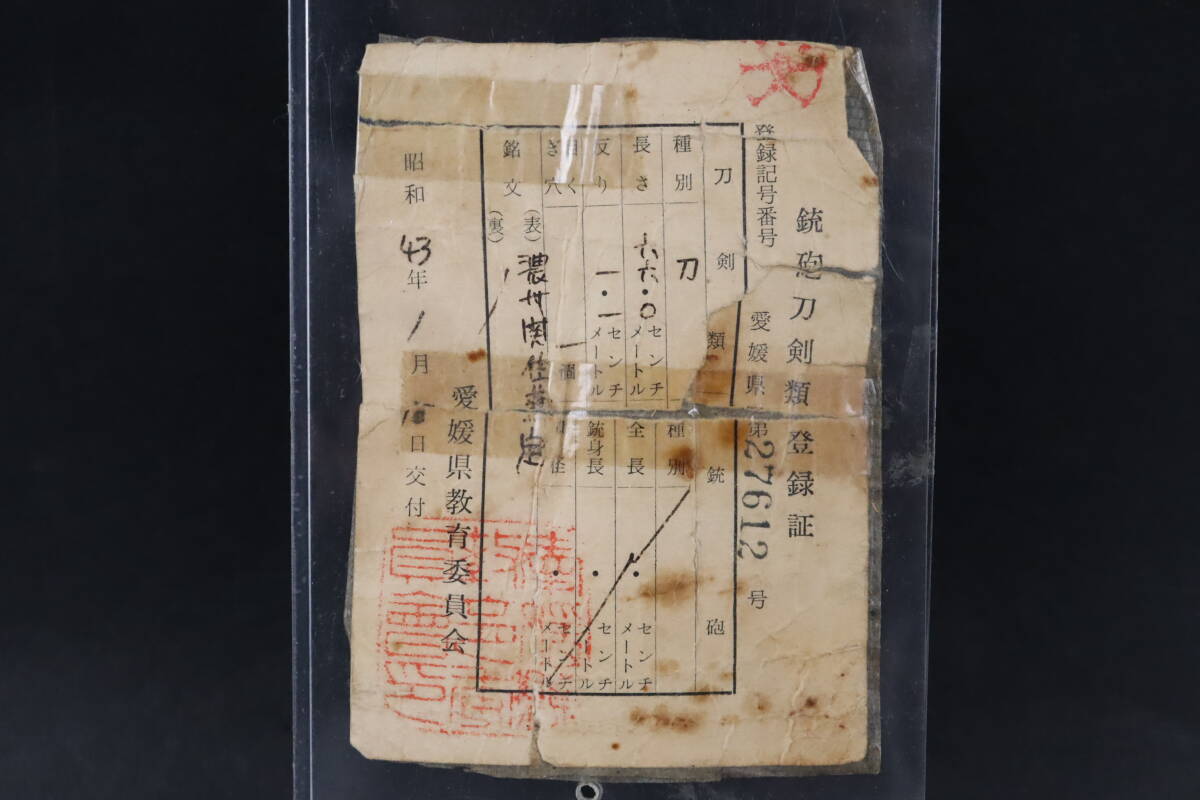 銃砲刀剣類登録証
登録記号番号 愛媛県 第27612号
刀剣類
種別 刀
長さ 六六・〇 センチメートル
反り 一・一 センチメートル
目くぎ穴 一個
銘文 (表) 濃州関住兼定
(裏)
銃砲
種別
全長 ・ センチメートル
銃身長 ・ センチメートル
・ センチメートル
昭和43年1月 日交付
愛媛県教育委員会